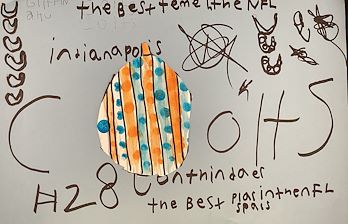 the Best teme ithe NFL
indianapolis
C OltS
#28 Jonthindaer
the Best PlasinthenFL